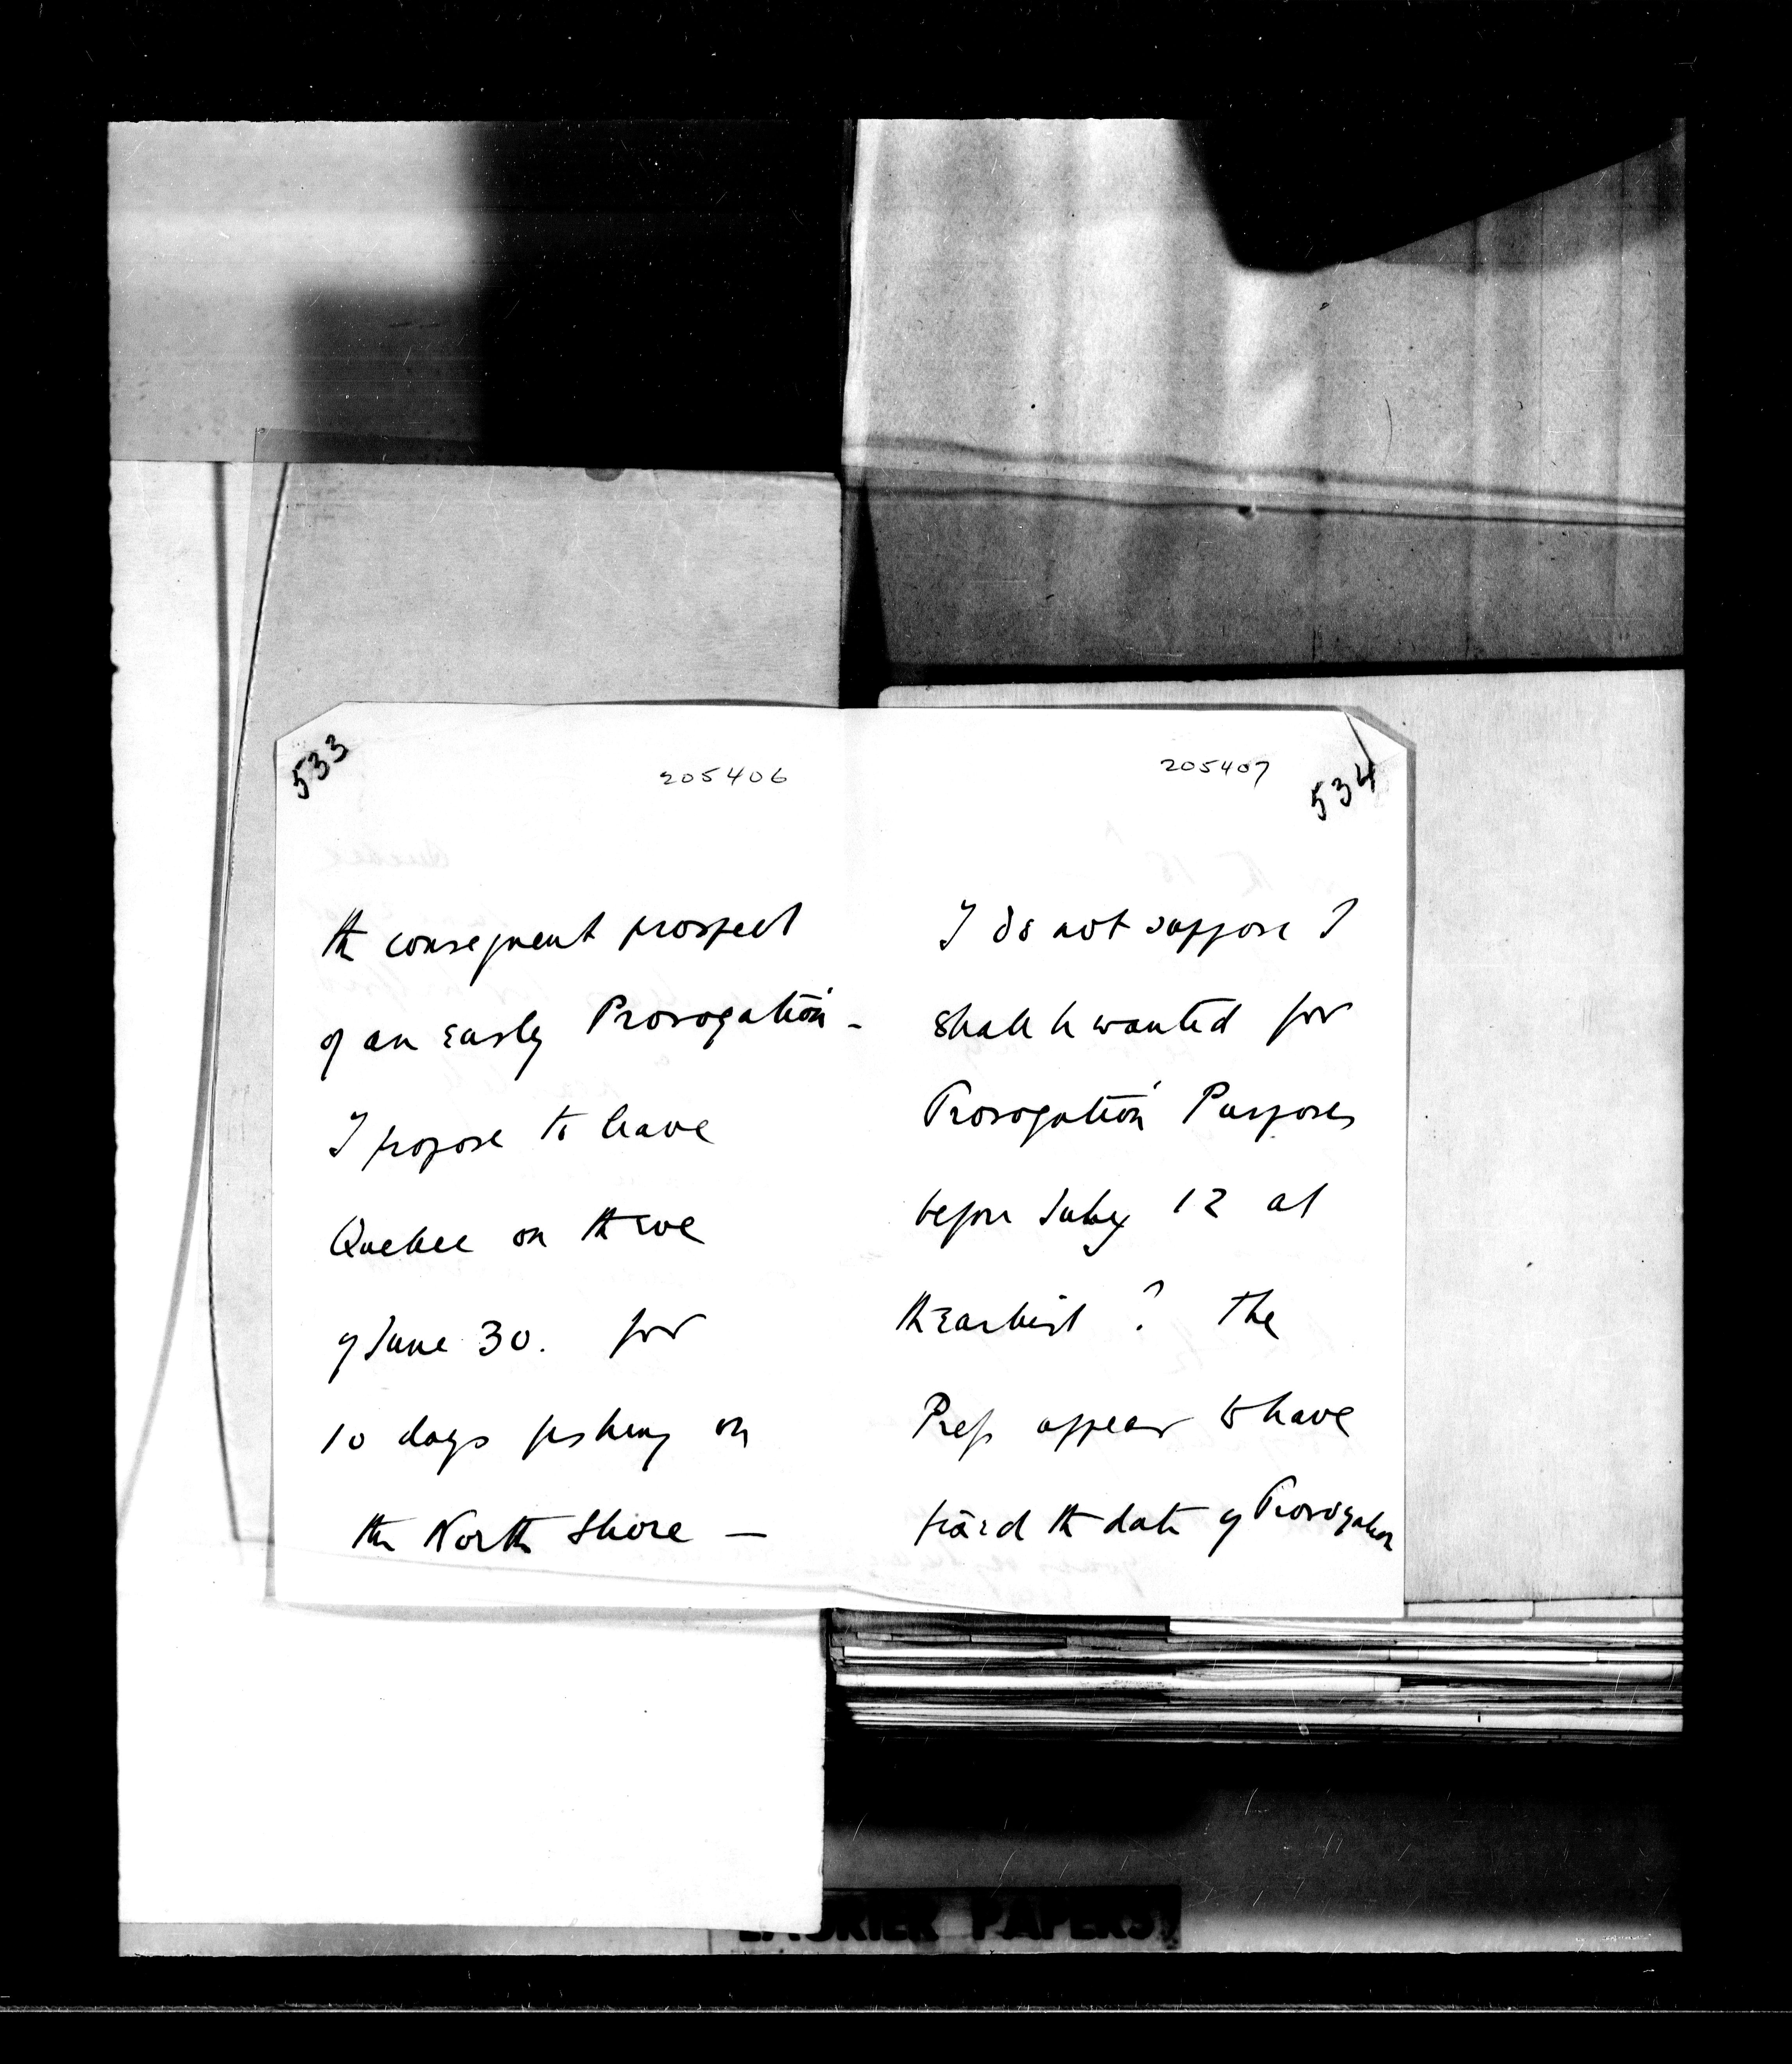 533
205406
the consequent prospect
of an early Prorogation -
I propose to leave
Quebec on the eve
of June 30. for
10 days fishing on
the North Shore —
205407
534
I do not suppose I
shall be wanted for
Prorogation Purposes
before July 12 at
the Earliest ? The
Press appear to have
fixed the date of Prorogation
LAURIER PAPERS